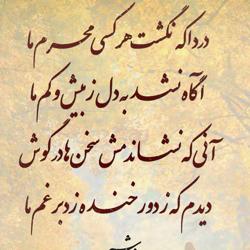 دردا که نگشت هر کسی محرم ما
آگاه نشد به دل ز بیش و کم ما
آنی که نشاندمش سخن ها در گوش
دیدم که ز دور خنده زد بر غم ما